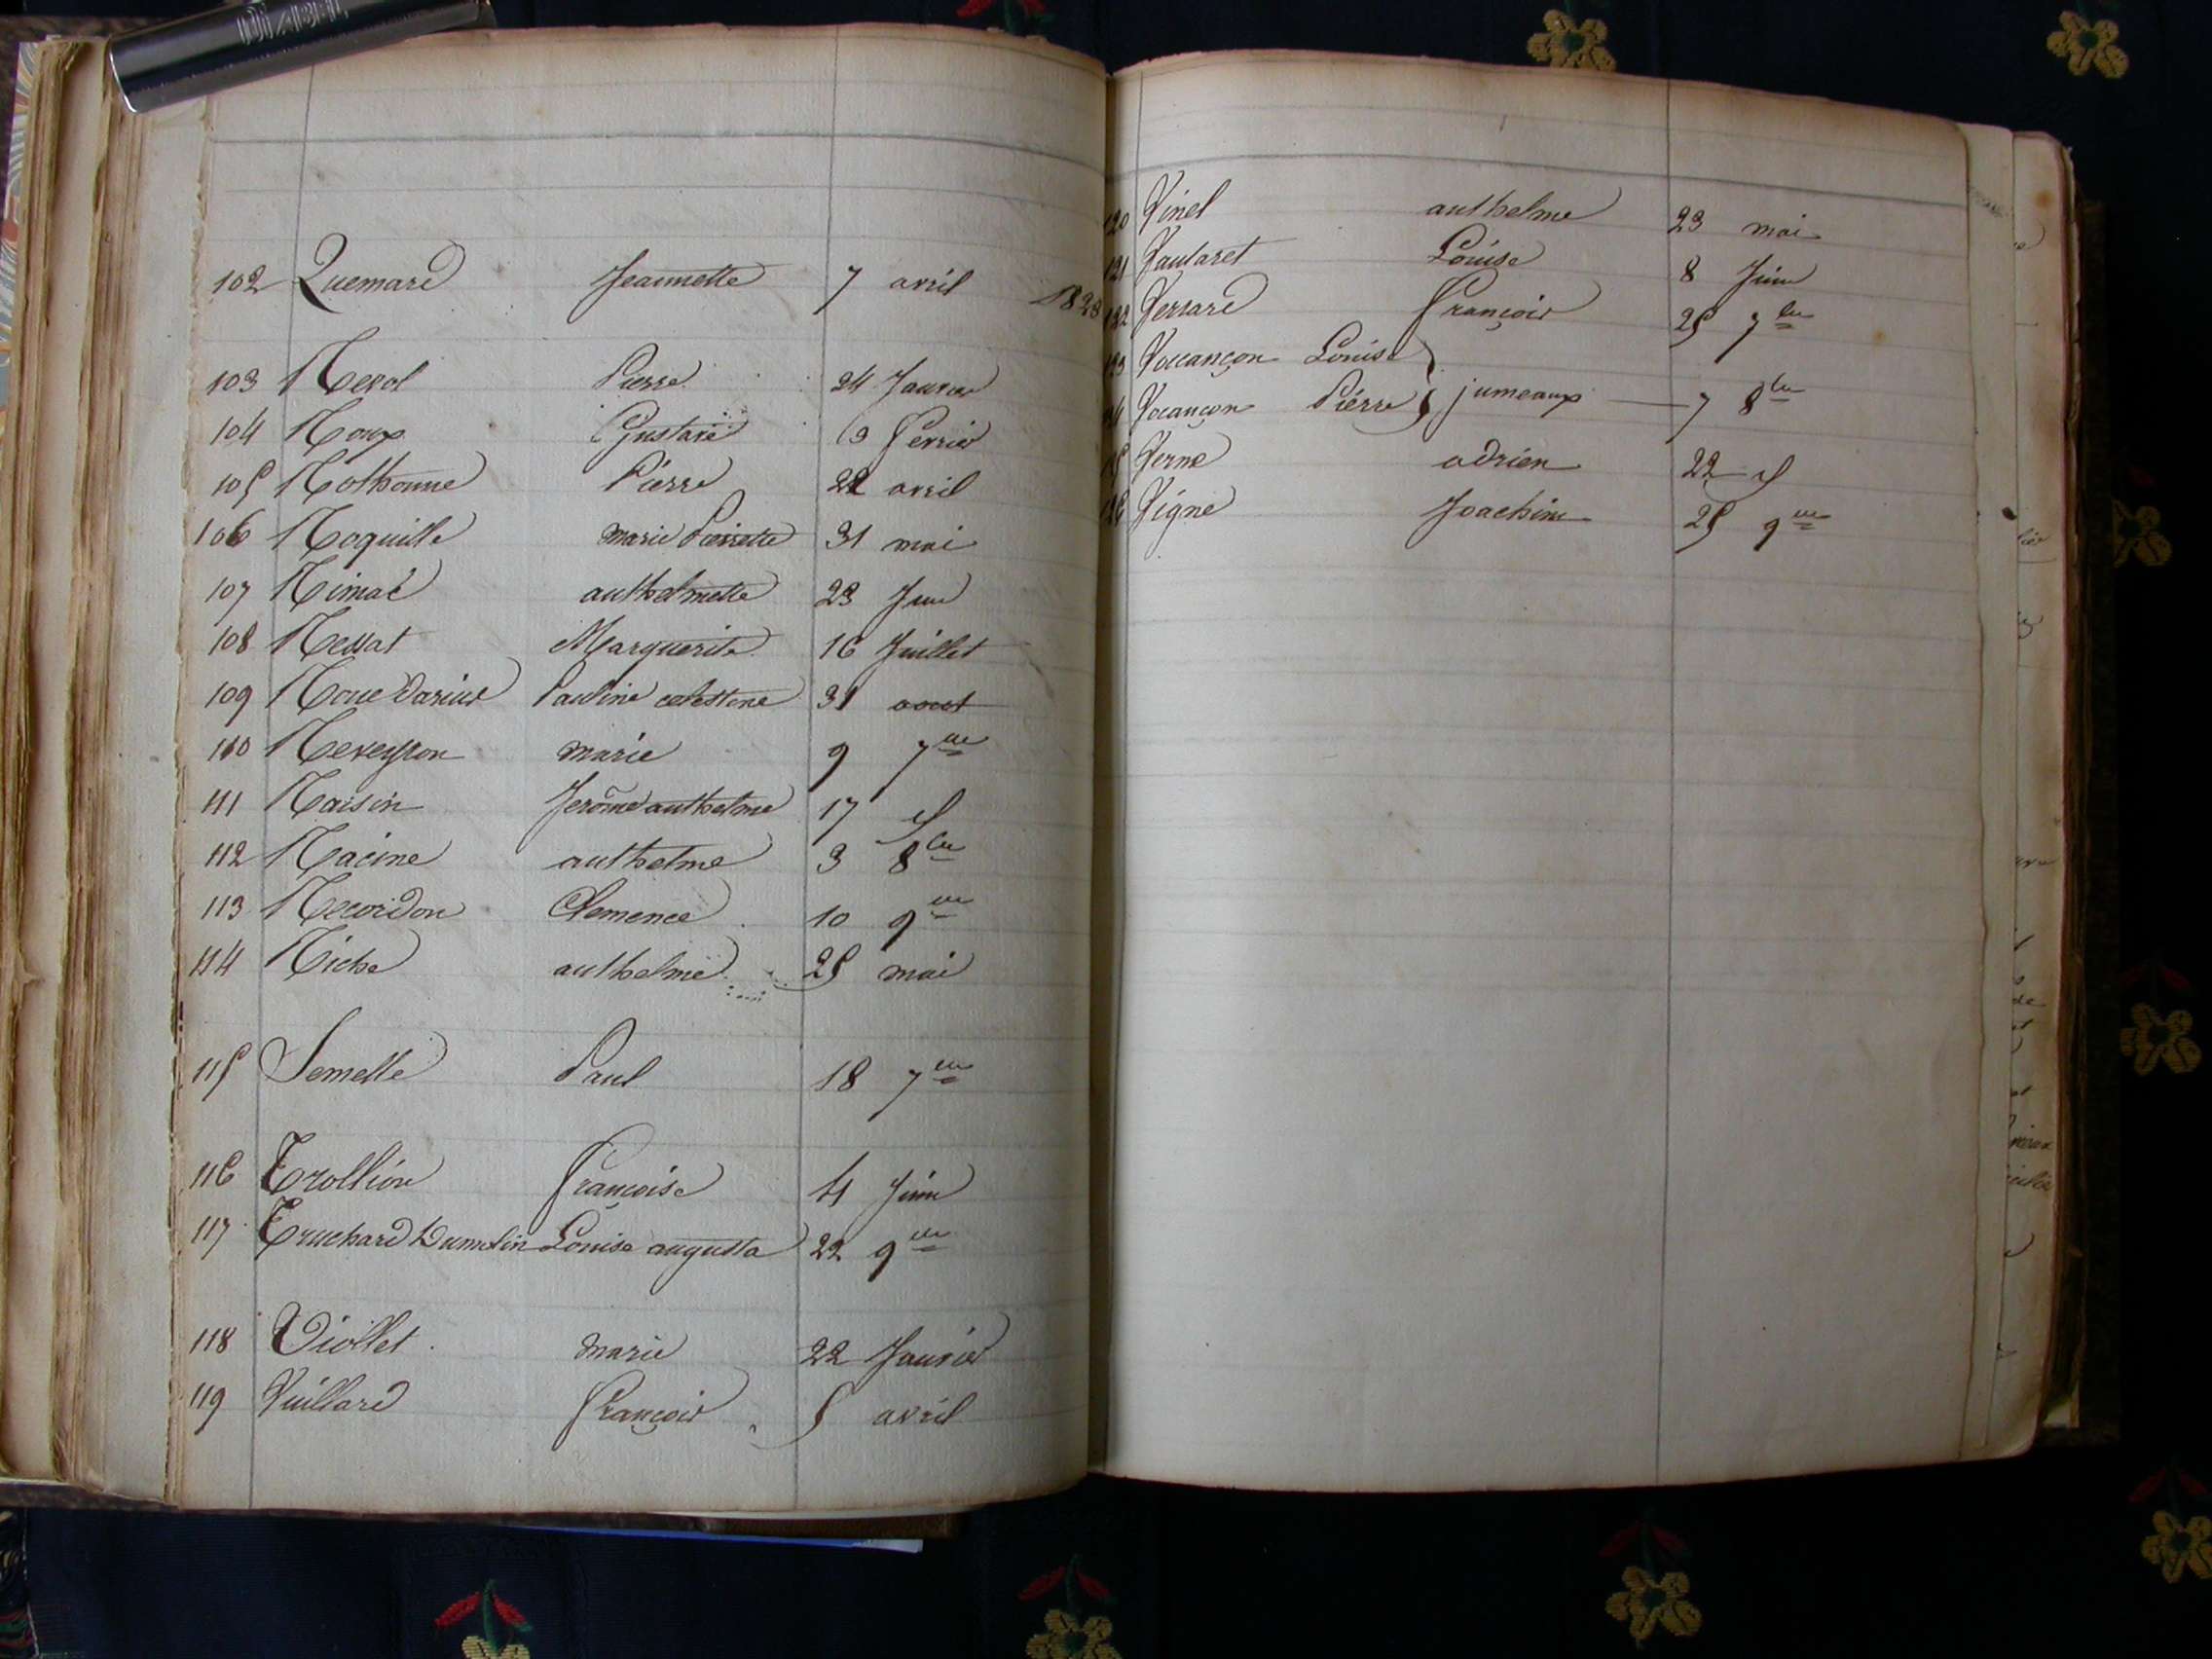 102 Quemard Jeannette 7 avril 1823
103 Revol Pierre 24 Janvier
104 Roux Gustave 19 Fevrier
105 Rothonne Pierre 22 avril
106 Roquille marie Pierrette 31 mai
107 Rimat anthelmette 23 Juin
108 Ressat Marguerite 16 Juillet
109 Roue Darius Pauline celestine 31 aout
110 Reveyron marie 9 7bre
111 Raisin Jerôme anthelme 17 d
112 Racine anthelme 3 8bre
113 Recordon Clemence 10 9bre
114 Riche anthelme 25 mai
115 Semelle Paul 18 7bre
116 Trollion Françoise 4 Juin
117 Truchard Dumolin Louise augusta 22 9bre
118 Viollet marie 22 Janvier
119 Vuillard François 5 avril
120 Vinel anthelme 23 mai
121 Vautaret Louise 8 Juin
122 Versard François 25 7bre
123 Vaucançon Louise
124 Vocançon Pierre } jumeaux 7 8bre
125 Verne adrien 22 d
126 Vigne Joachim 25 9bre